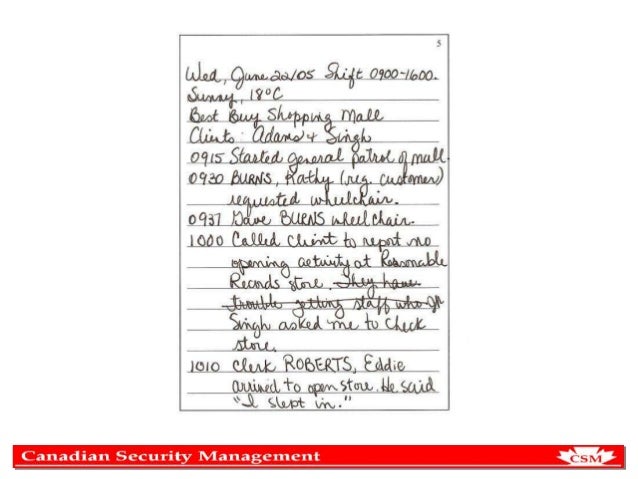 5
Wed, June 22/05 Shift 0900-1600.
Sunny, 18°C
Best Buy Shopping Mall
Clients: Adams + Singh
0915 Started general patrol of mall.
0930 BURNS, Kathy (reg. customer)
requested wheelchair.
0937 Gave BURNS wheelchair.
1000 Called client to report no
opening activity at Reasonable
Records store. They have
trouble getting staff who
Singh asked me to check
store.
1010 Clerk ROBERTS, Eddie
arrived to open store. He said
"I slept in."
Canadian Security Management
CSM